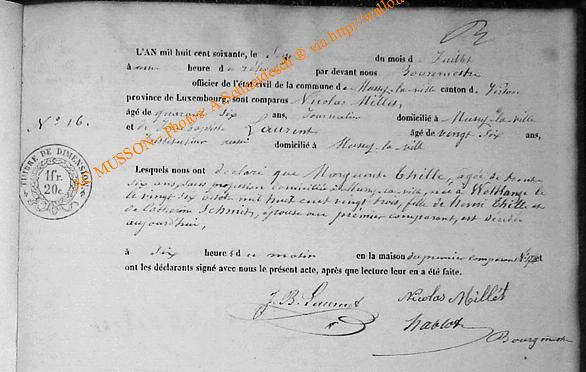 L'AN mil huit cent soixante, le Six du mois d Juillet
à une heure d relevée par devant nous Bourgmestre
officier de l'état civil de la commune de Mussy-la-ville canton d Virton
province de Luxembourg, sont comparus Nicolas Millet,
âgé de quarante six ans, Journalier domicilié à Mussy-la-ville
et de J. Baptiste Laurent âgé de vingt Six ans,
Instituteur domicilié à Mussy-la-ville
N° 16.
TIMBRE DE DIMENSION
1fr.
20c.
Lesquels nous ont déclaré que Marguerite Thille, agée de trente
Six ans, sans profession domiciliée à Mussy-la-ville, née à Wolklange
le vingt six mil huit cent vingt trois, fille de Henri Thille et
de Catherine Schmitz, épouse au premier comparant, est décédée
aujourd'hui,
à six heures du matin en la maison du premier comparant
ont les déclarants signé avec nous le présent acte, après que lecture leur en a été faite.
J. B. Laurent Nicolas Millet
Bourgmestre
MUSSON - Photos: A Schneidesch ® via http://wallo